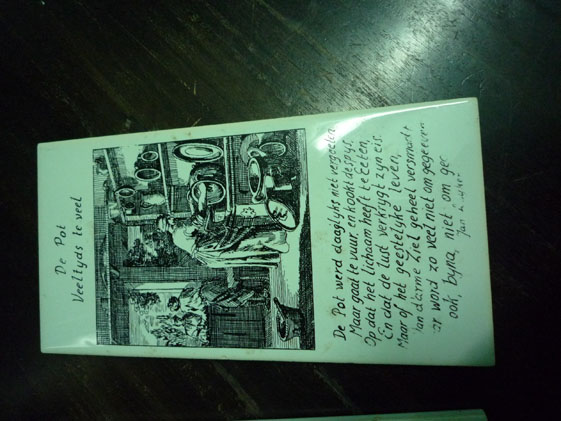 De Pot
Veeltyds te veel
De Pot werd daaglyks niet vergeeten,
Maar gaat te vuur, en kookt de spys,
Op dat het lichaam heeft te Eeten,
En dat de lust verkrygt zyn eis.
Maar of het geestelyke leven,
van d'arme Ziel geheel versmacht
word zo veel niet om gegeeven
ook, byna, niet om ge
Jan